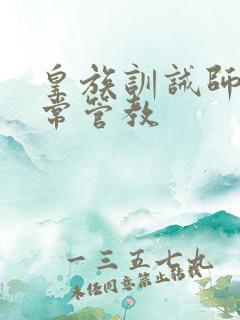 皇族訓誡師
常管教
一三五七九
未经同意禁止转载